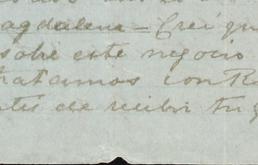 agdalena = Creí qu
sobre este negocio
tratamos con R
ntes de recibir tu